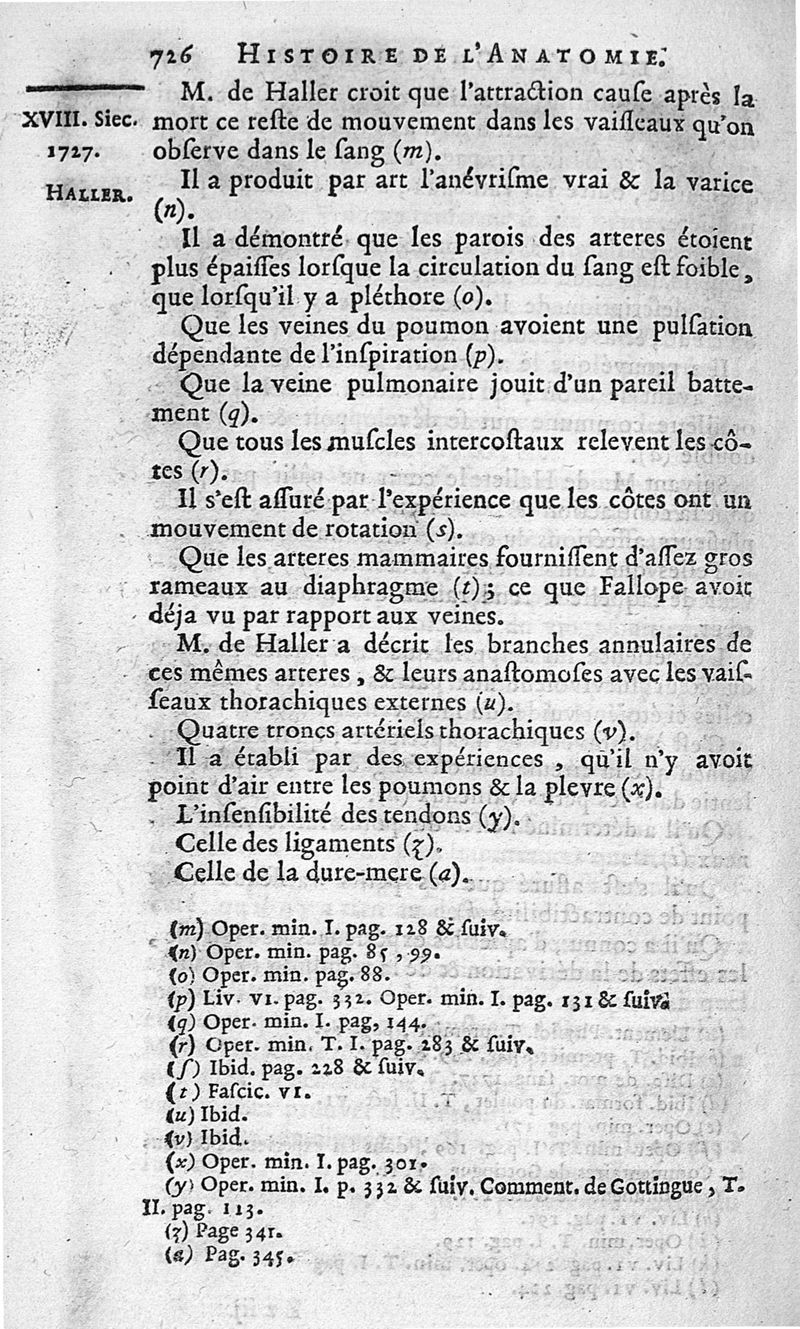 726 HISTOIRE DE L'ANATOMIE.
XVIII. Siec.
1727.
HALLER.
M. de Haller croit que l'attraction cauſe après la
mort ce reſte de mouvement dans les vaiſſeaux qu'on
obſerve dans le ſang (m).
Il a produit par art l'anévriſme vrai & la varice
(n).
Il a démontré que les parois des arteres étoient
plus épaiſſes lorſque la circulation du ſang eſt foible,
que lorſqu'il y a pléthore (o).
Que les veines du poumon avoient une pulſation
dépendante de l'inſpiration (p).
Que la veine pulmonaire jouit d'un pareil batte-
ment (q).
Que tous les muſcles intercoſtaux relevent les cô-
tes (r).
Il s'eſt aſſuré par l'expérience que les côtes ont un
mouvement de rotation (s).
Que les arteres mammaires fourniſſent d'aſſez gros
rameaux au diaphragme (t); ce que Fallope avoit
déja vu par rapport aux veines.
M. de Haller a décrit les branches annulaires de
ces mêmes arteres, & leurs anaſtomoſes avec les vaiſ-
ſeaux thorachiques externes (u).
Quatre troncs artériels thorachiques (v).
Il a établi par des expériences, qu'il n'y avoit
point d'air entre les poumons & la plevre (x).
L'inſenſibilité des tendons (y).
Celle des ligaments (z).
Celle de la dure-mere (a).
(m) Oper. min. I. pag. 128 & ſuiv.
(n) Oper. min. pag. 85, 99.
(o) Oper. min. pag. 88.
(p) Liv. VI. pag. 332. Oper. min. I. pag. 131 & ſuiv.
(q) Oper. min. I. pag, 144.
(r) Oper. min. T. I. pag. 283 & ſuiv.
(ſ) Ibid. pag. 228 & ſuiv.
(t) Faſcic. VI.
(u) Ibid.
(v) Ibid.
(x) Oper. min. I. pag. 301.
(y) Oper. min. I. p. 332 & ſuiv. Comment. de Gottingue, T.
II. pag. 113.
(z) Page 341.
(a) Pag. 345.